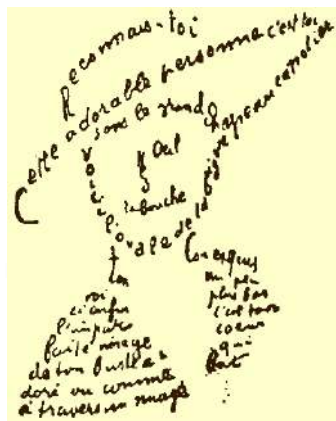 Reconnais-toi
Cette adorable personne c'est toi
sous le grand chapeau canotier
Oeil
la bouche
voici l'ovale de ta figure
ton
Cou exquis
voi
ci enfin
l'impar
faite image
de ton buste a
doré vu comme
à travers un nuage
un peu
plus bas
c'est ton
coeur
qui
bat